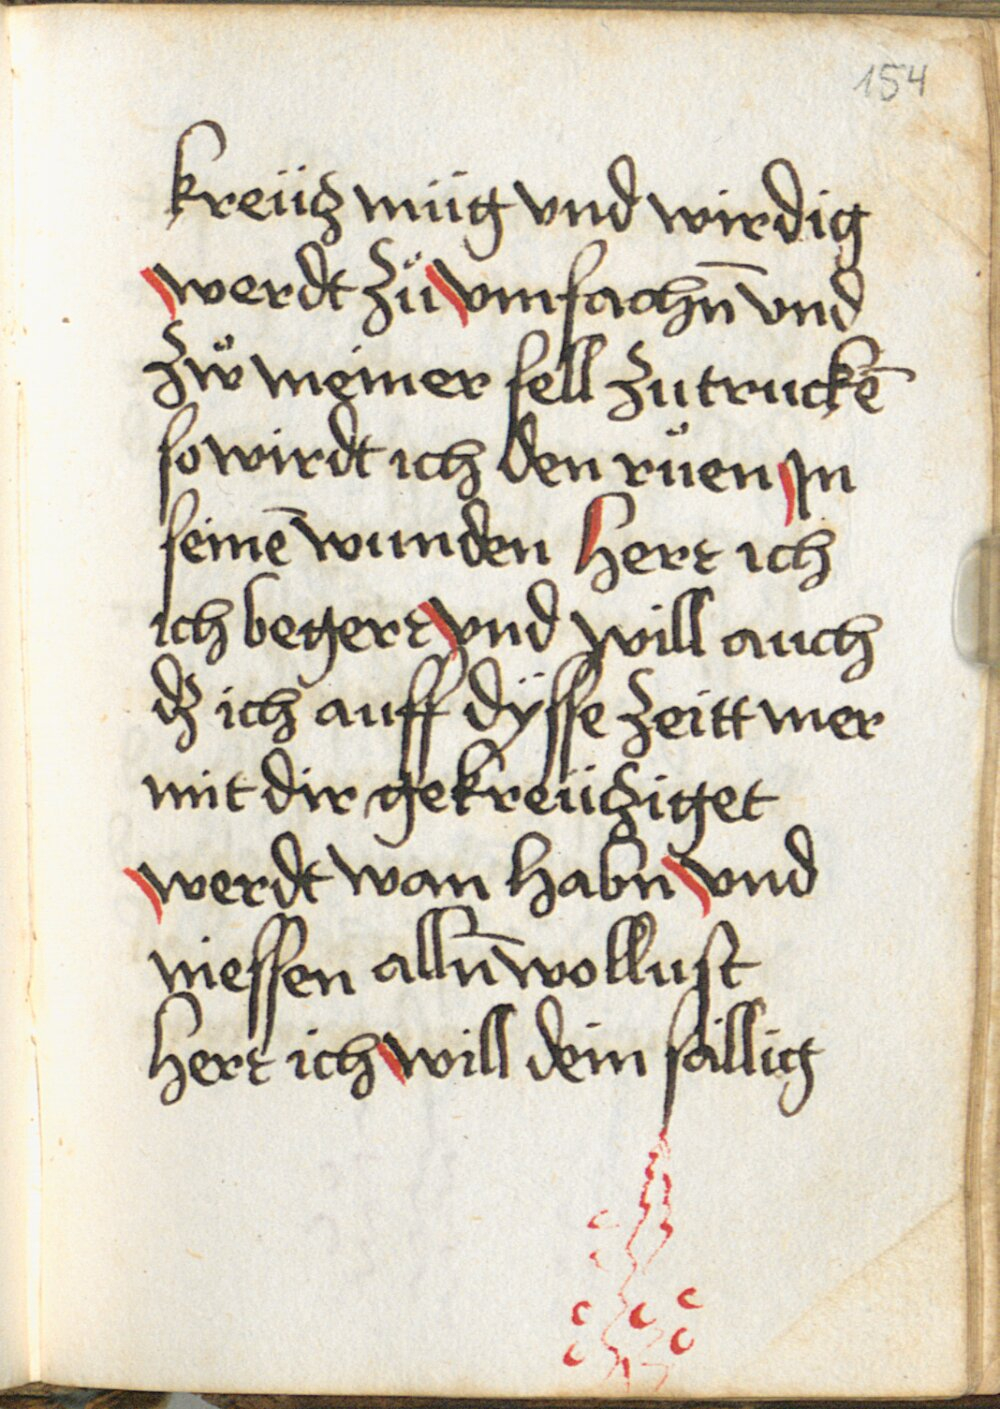 154
kreütz müg vnd wirdig
werdt zů vmfachn̄ vnd
zẘ meiner sell zu truckē
so wirdt ich den růen Jn
seinē wunden hert ich
ich begert vnd will auch
dz ich auff dÿsse zeitt mer
mit dir gekreütziget
werdt wan habn vnd
niessen alln̄ wollust
hert ich will dein fällig